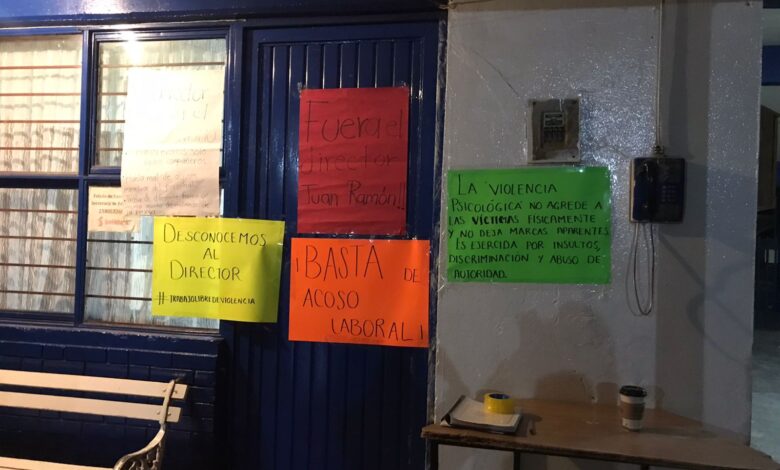 Fuera el
director
Juan Ramón!!
DESCONOCEMOS
AL
DIRECTOR
#TRABAJOLIBREDEVIOLENCIA
¡BASTA DE
ACOSO
LABORAL!
LA VIOLENCIA
PSICOLÓGICA NO AGREDE A
LAS VÍCTIMAS FÍSICAMENTE
Y NO DEJA MARCAS APARENTES.
ES EJERCIDA POR INSULTOS,
DISCRIMINACIÓN Y ABUSO DE
AUTORIDAD.